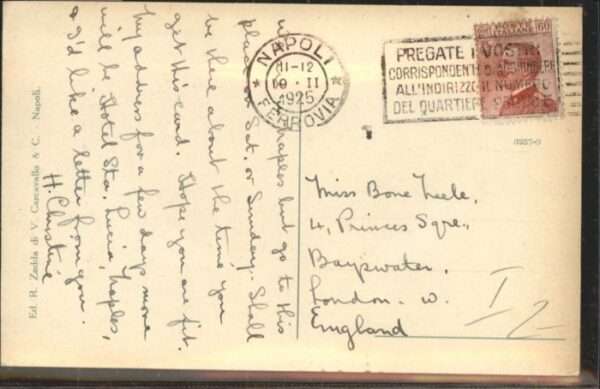 Naples but go to this
place on Sat. or Sunday. Shall
be there about the time you
get this card. Hope you are fit.
My address for a few days more
will be Hotel Sta. Lucia, Naples,
& I'd like a letter from you.
H. Christine
Ed. R. Zedda di V. Carcavallo & C. - Napoli.
NAPOLI
11-12
10 · II
1925
FERROVIA
PREGATE I VOSTRI
CORRISPONDENTI D'AGGIUNGERE
ALL'INDIRIZZO IL NUMERO
DEL QUARTIERE POSTALE
60
Miss Bone
4, Princes Sqre.,
Bayswater,
London. W.
England
I 2/-